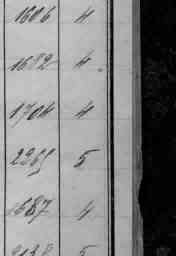 1606 4
1682 4
1704 4
2265 5
1687 4
2138 5